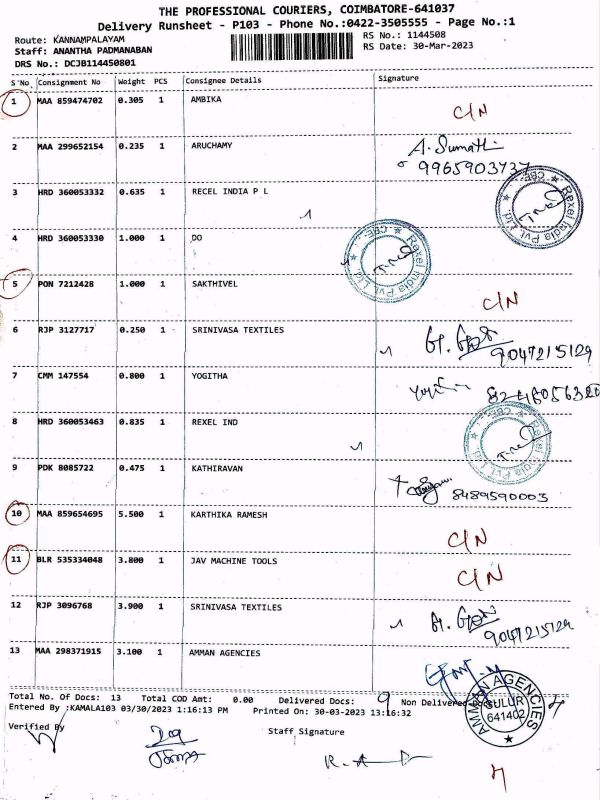 THE PROFESSIONAL COURIERS, COIMBATORE-641037
Delivery Runsheet - P103 - Phone No.:0422-3505555 - Page No.:1
Route: KANNAMPALAYAM
RS No.: 1144508
Staff: ANANTHA PADMANABAN
RS Date: 30-Mar-2023
DRS No.: DCJB114450801
S No Consignment No Weight PCS Consignee Details Signature
1 MAA 859474702 0.305 1 AMBIKA C/N
2 MAA 299652154 0.235 1 ARUCHAMY A. Sumathi
9965903737
3 HRD 360053332 0.635 1 RECEL INDIA P L
Rexel India Pvt. Ltd. CBE.
4 HRD 360053330 1.000 1 DO
Rexel India Pvt. Ltd. CBE.
5 PON 7212428 1.000 1 SAKTHIVEL C/N
6 RJP 3127717 0.250 1 SRINIVASA TEXTILES
9047215129
7 CMM 147554 0.800 1 YOGITHA 8248056320
8 HRD 360053463 0.835 1 REXEL IND
Rexel India Pvt. Ltd. CBE.
9 PDK 8085722 0.475 1 KATHIRAVAN
8489590003
10 MAA 859654695 5.500 1 KARTHIKA RAMESH C/N
11 BLR 535334048 3.800 1 JAV MACHINE TOOLS C/N
12 RJP 3096768 3.900 1 SRINIVASA TEXTILES
9047215129
13 MAA 298371915 3.100 1 AMMAN AGENCIES
AMMAN AGENCIES
SULUR
641402
Total No. Of Docs: 13 Total COD Amt: 0.00 Delivered Docs: 9 Non Delivered Docs: 4
Entered By :KAMALA103 03/30/2023 1:16:13 PM Printed On: 30-03-2023 13:16:32
Verified By
Staff Signature
4